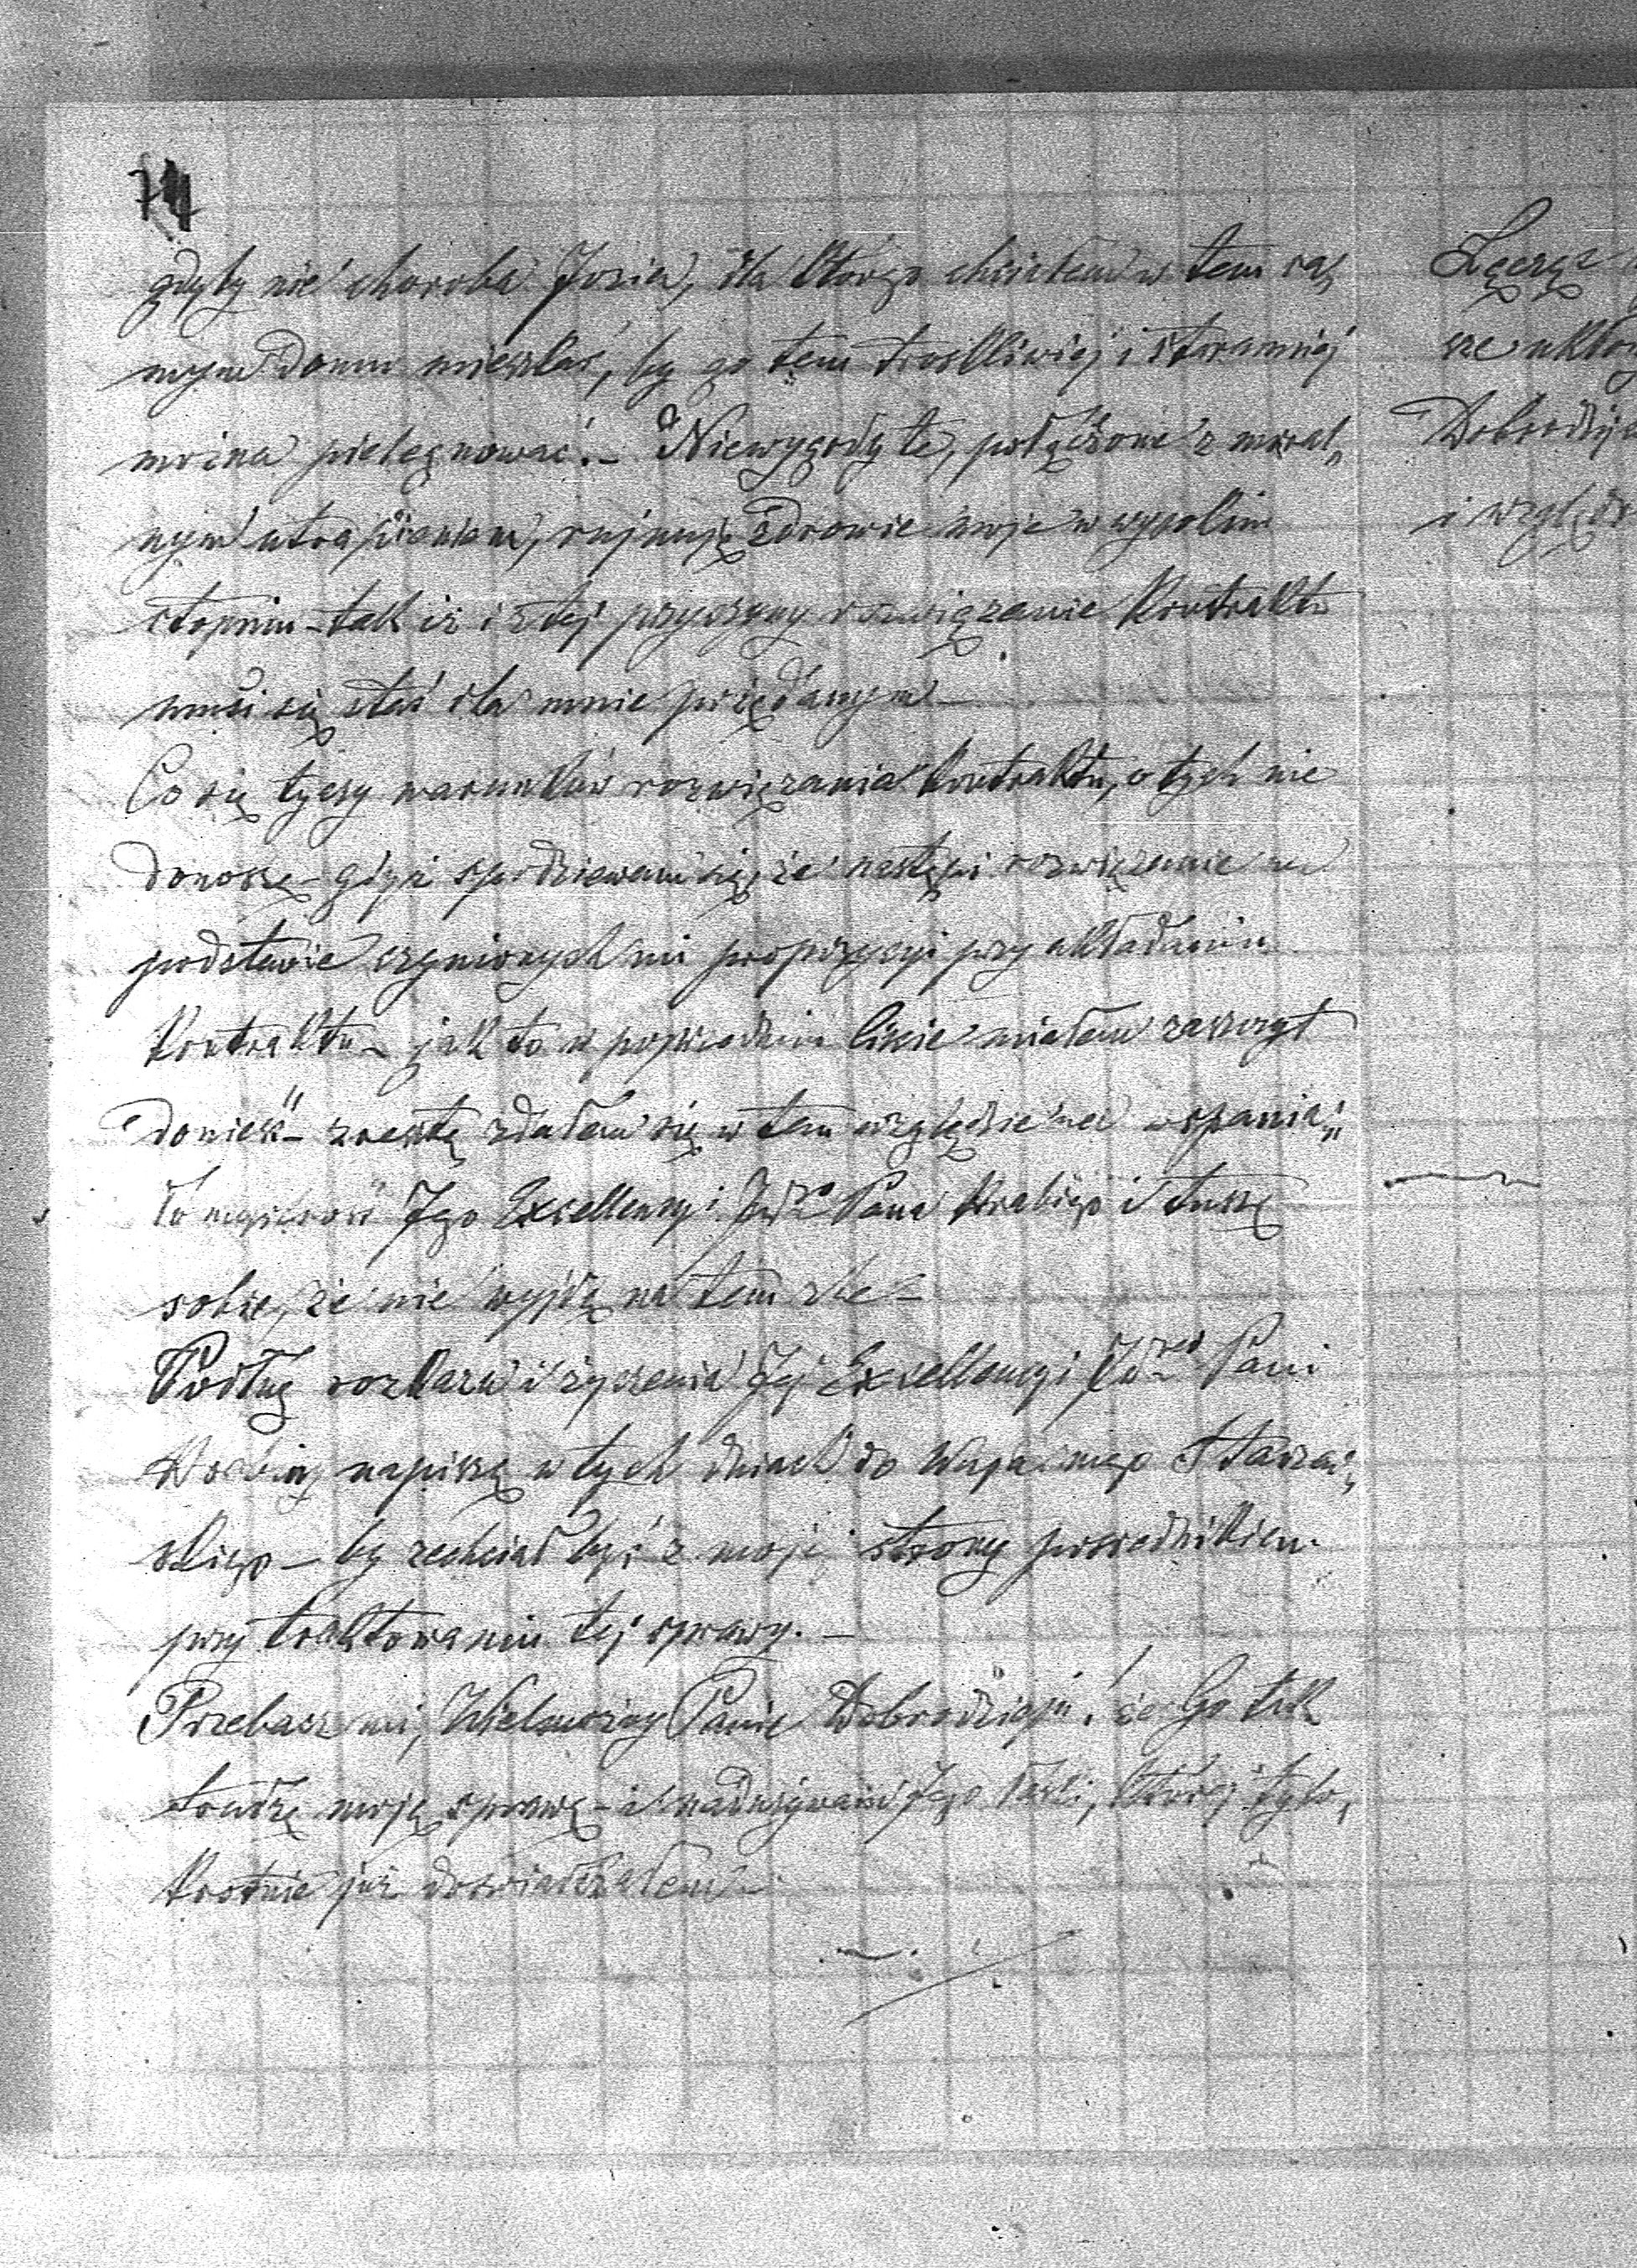 74
gdyby nie choroba Józia, dla którego chciałem w tem sa„
mym Domu mieszkać, by go tem troskliwiej i staranniej
można pielęgnować. – Niewygody te, połączone z moral„
nym utrapieniem, rujnują zdrowie moje w wysokim
stopniu – tak iż i z tej przyczyny rozwiązanie Kontraktu
musi się stać dla mnie pożądanym –
Co się tyczy warunków rozwiązania Kontraktu, o tych nie
donoszę – gdyż spodziewam się, że nastąpi rozwiązanie na
podstawie czynionych mi propozycyi przy układaniu
Kontraktu – jak to w poprzednim liście miałem zaszczyt
donieść – zresztą zdałem się w tem względzie na wspania„
łomyślność Jego Excellencyi Pana Hrabiego i tuszę
sobie, że nie wyjdę na tem źle –
Podług rozkazu i życzenia Jej Excellencyi Pani
Hrabiny napiszę w tych dniach do Starzeń„
skiego – by zechciał być z mojej strony pośrednikiem
przy traktowaniu tej sprawy. –
Przebacz mi, Wielmożny Panie Dobrodzieju! że Go tak
trudzę moją sprawą – i nadużywam Jego łaski, której tylo„
krotnie już doświadczałem –
Łączę
sze ukłon
Dobrodziej
i względ